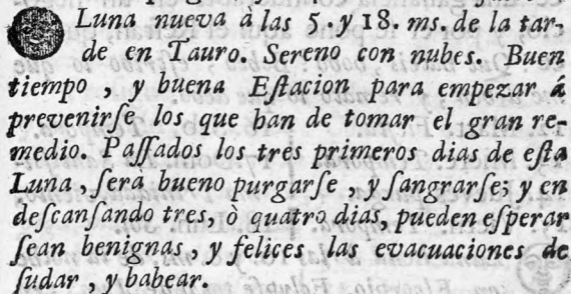 Luna nueva à las 5. y 18. ms. de la tar-
de en Tauro. Sereno con nubes. Buen
tiempo, y buena Eſtacion para empezar á
prevenirſe los que han de tomar el gran re-
medio. Paſſados los tres primeros dias de eſta
Luna, ſerà bueno purgarſe, y ſangrarſe; y en
deſcanſando tres, ò quatro dias, pueden eſperar
ſean benignas, y felices las evacuaciones de
ſudar, y babear.